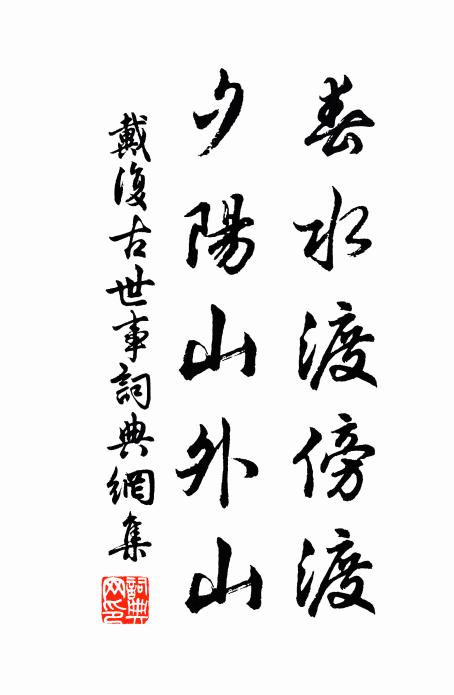 春水渡傍渡
夕陽山外山
戴復古世事詞典網集
詞典網印